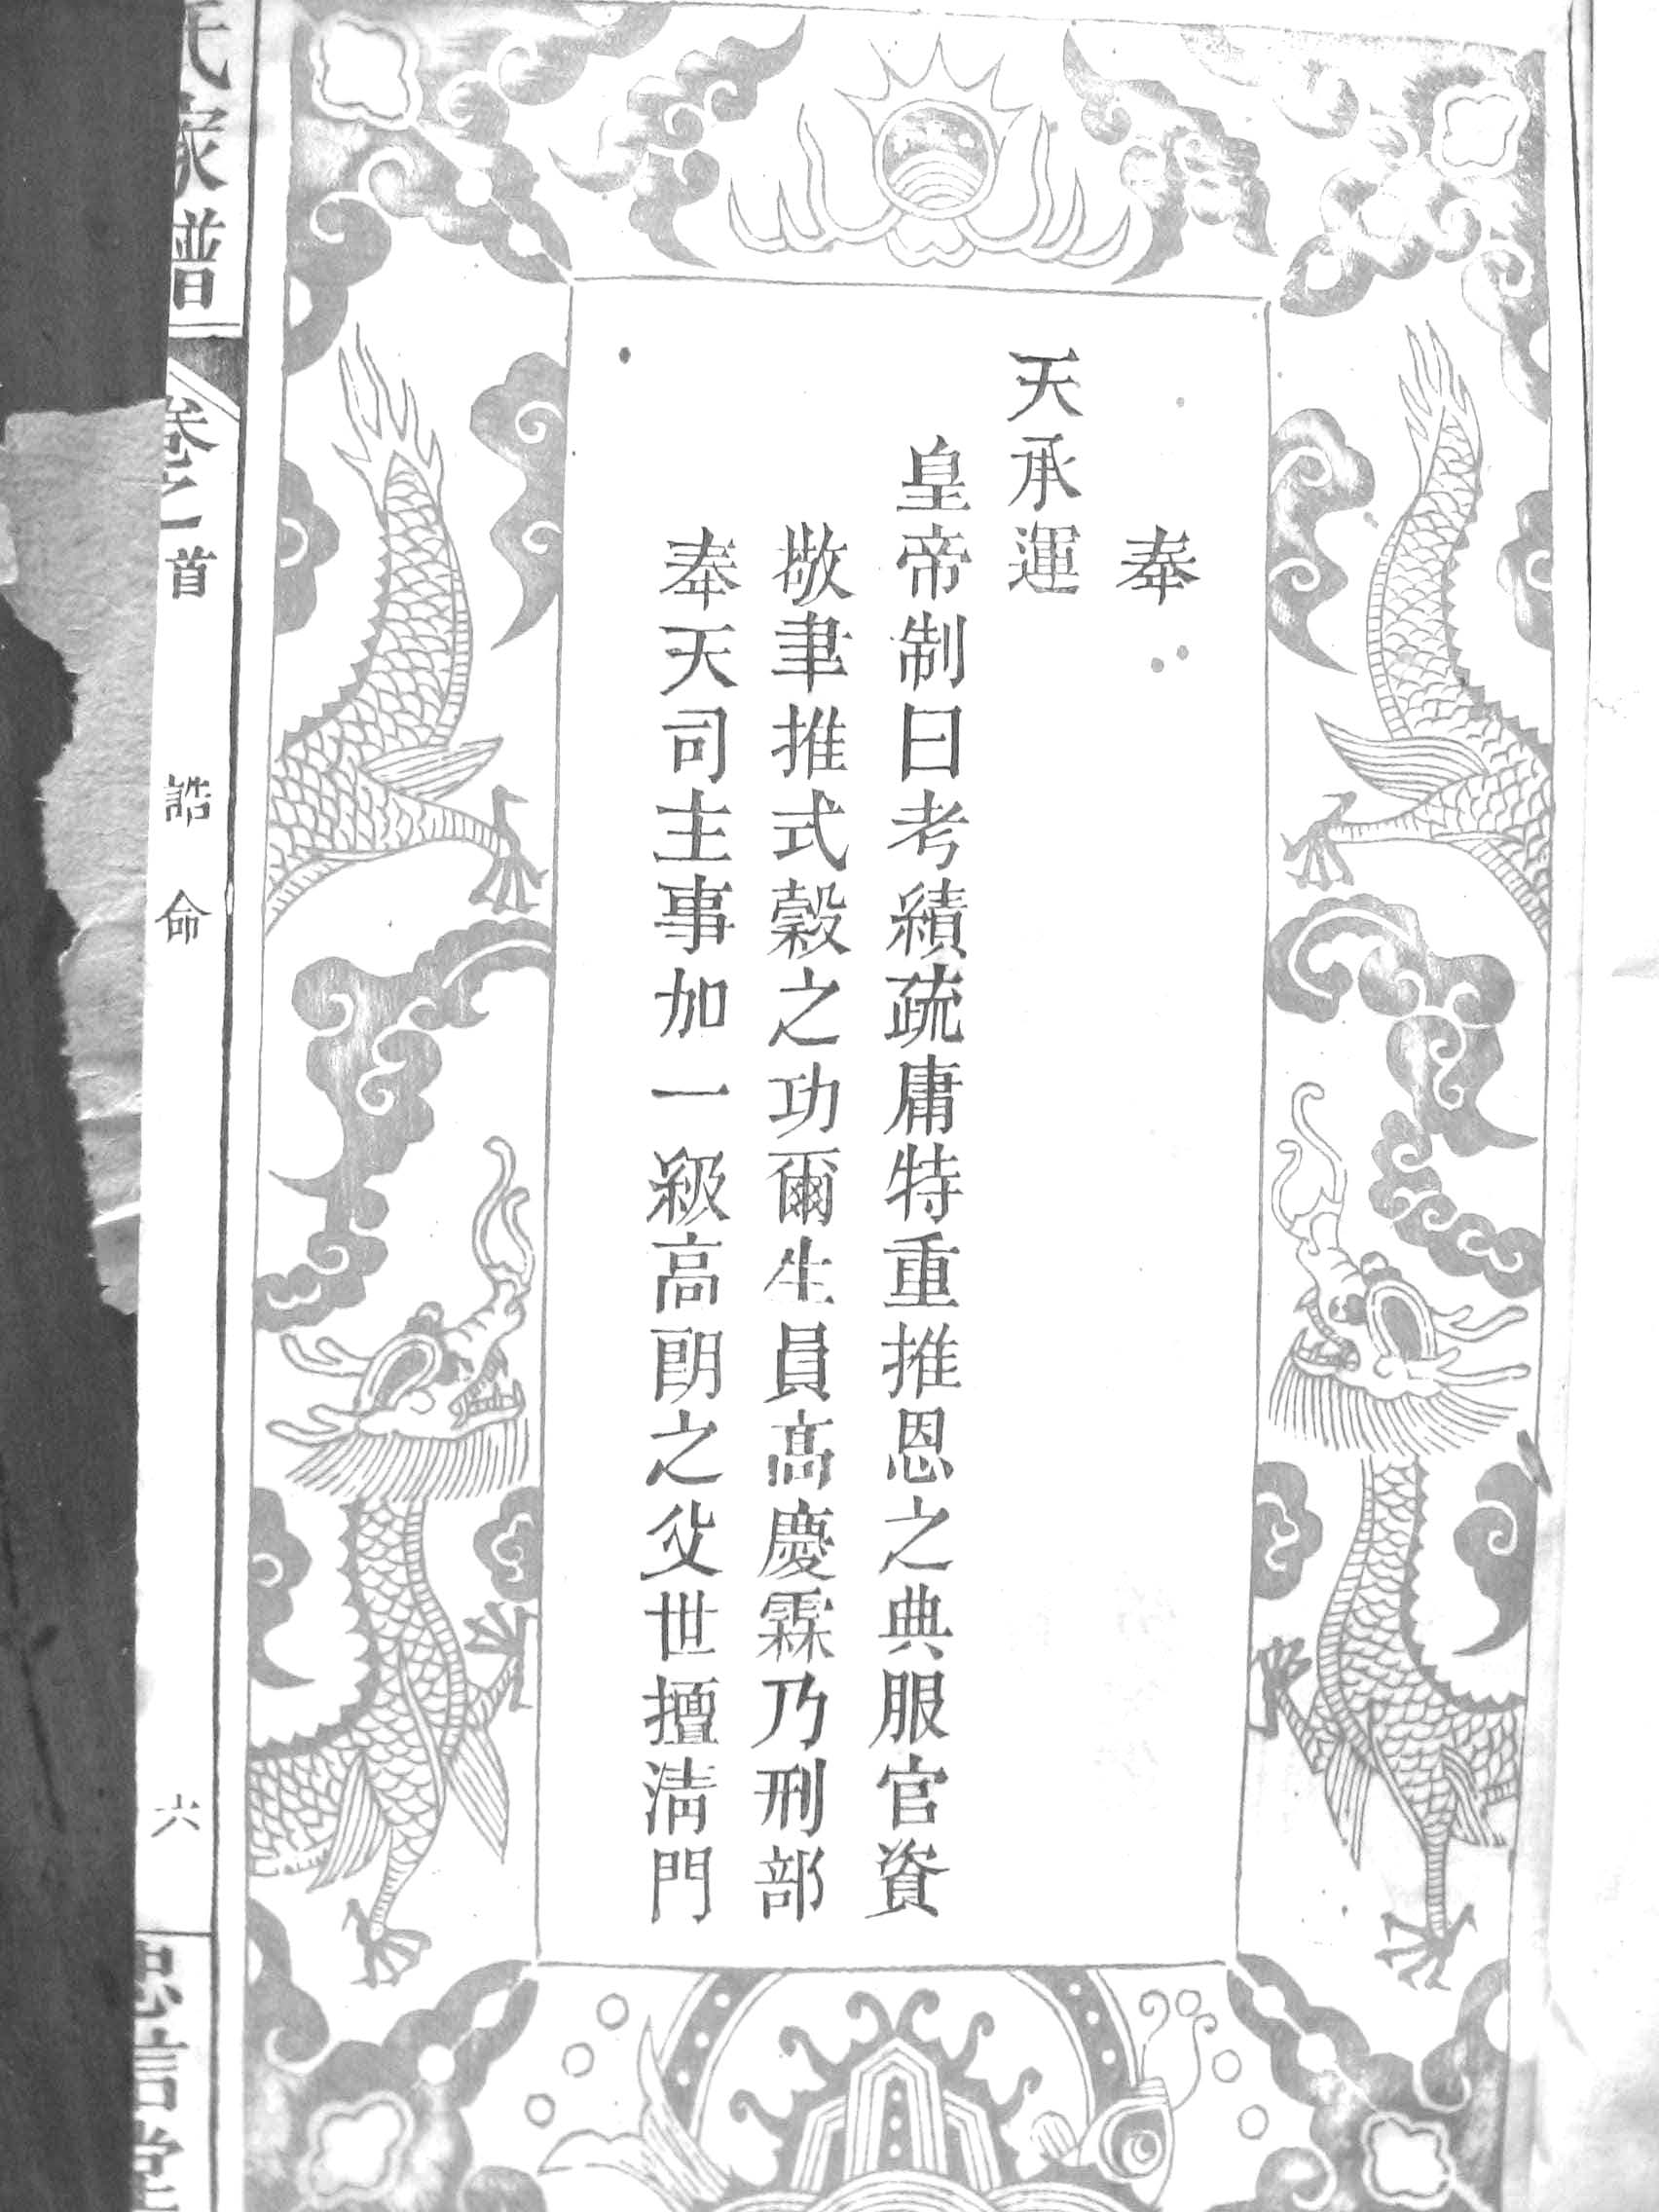 奉
天承運
皇帝制曰考績疏庸特重推恩之典服官資
敬聿推式穀之功爾生員高慶霖乃刑部
奉天司主事加一級高朗之父世擅淸門
氏家譜
卷之首
誥命
六
忠信堂